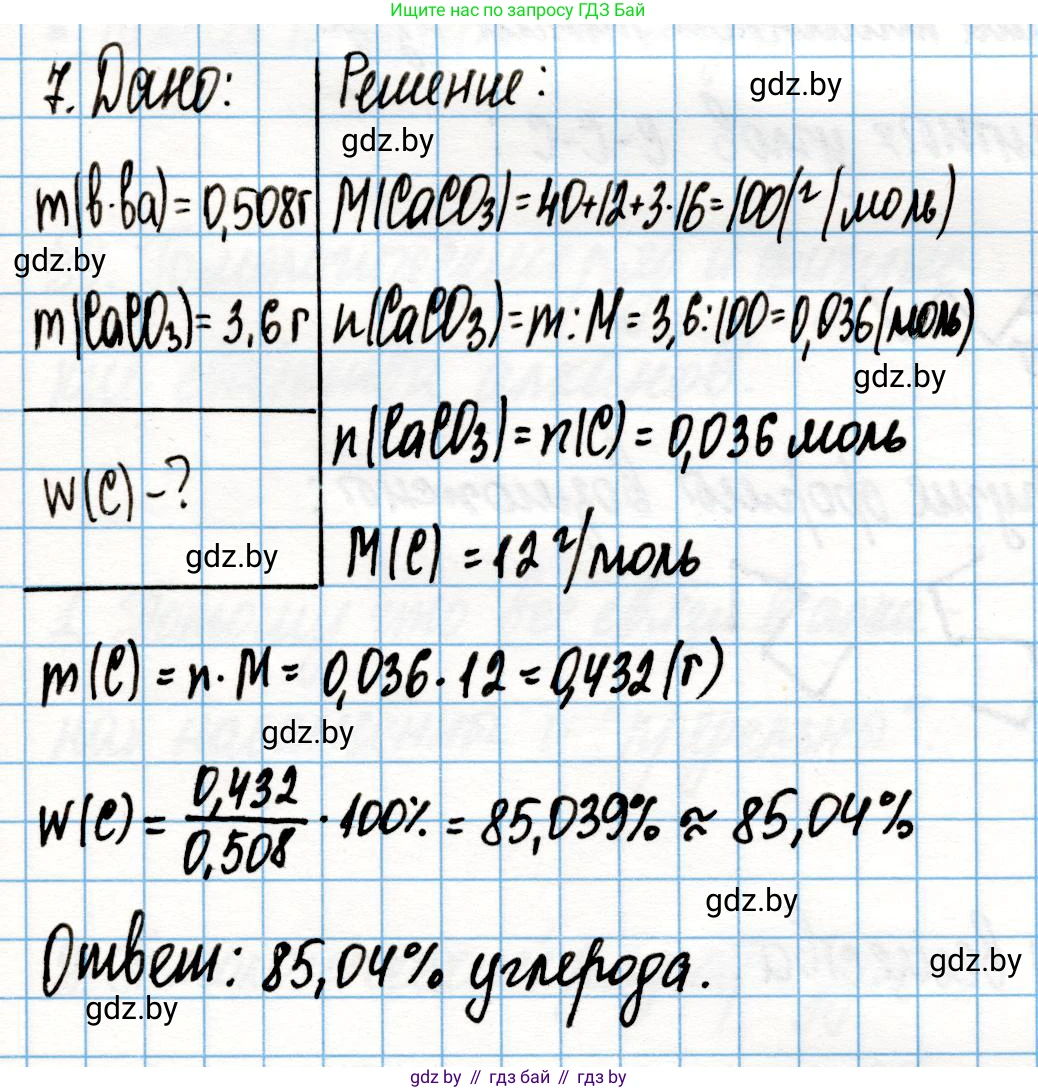 Ищите нас по запросу ГДЗ Бай
7. Дано:
Решение:
gdz.by
gdz.by
m(в-ва) = 0,508г
M(CaCO₃) = 40+12+3·16 = 100(г/моль)
gdz.by
m(CaCO₃) = 3,6 г
n(CaCO₃) = m : M = 3,6:100 = 0,036(моль)
gdz.by
n(CaCO₃) = n(C) = 0,036 моль
w(C) - ?
gdz.by
M(C) = 12 г/моль
m(C) = n · M = 0,036 · 12 = 0,432 (г)
gdz.by
w(C) = 0,432/0,508 · 100% = 85,039% ≈ 85,04%
gdz.by
Ответ: 85,04% углерода.
gdz.by
gdz.by
gdz.by // гдз бай // гдз by